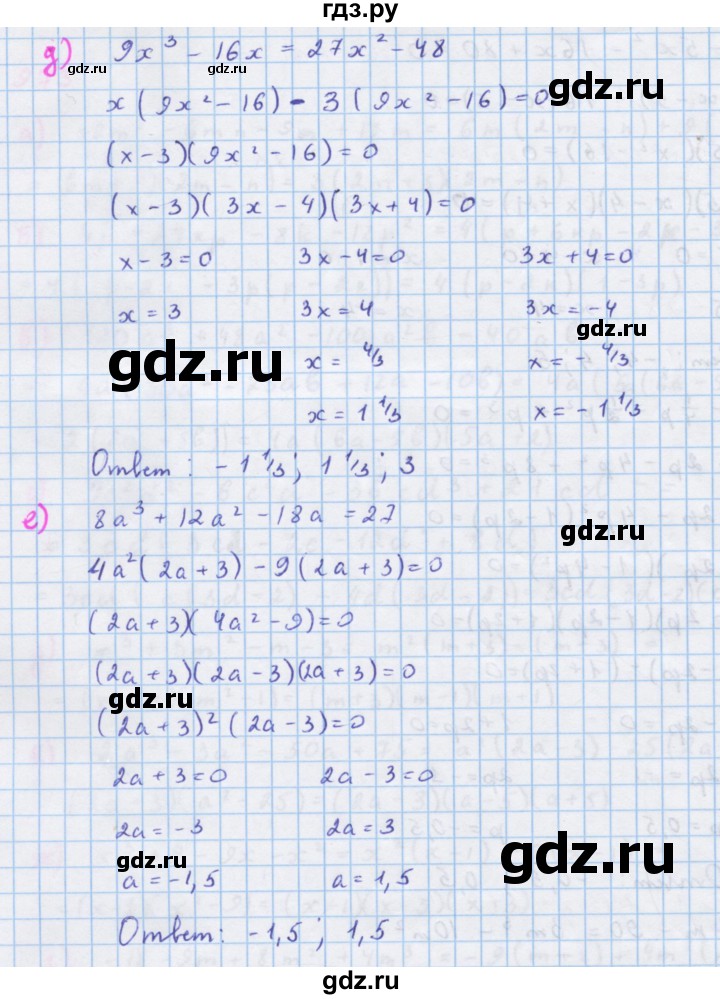 гдз.ру
д) 9x³ − 16x = 27x² − 48
gdz.ru gdz.ru
x(9x² − 16) − 3(9x² − 16) = 0
gdz.ru
(x − 3)(9x² − 16) = 0
(x − 3)(3x − 4)(3x + 4) = 0
x − 3 = 0 3x − 4 = 0 3x + 4 = 0
x = 3 3x = 4 3x = −4
gdz.ru
gdz.ru x = 4/3 x = −4/3
x = 1 1/3 x = −1 1/3
gdz.ru
Ответ: −1 1/3; 1 1/3; 3
gdz.ru
е) 8a³ + 12a² − 18a = 27
gdz.ru
4a²(2a + 3) − 9(2a + 3) = 0
(2a + 3)(4a² − 9) = 0
(2a + 3)(2a − 3)(2a + 3) = 0
gdz.ru
(2a + 3)²(2a − 3) = 0
2a + 3 = 0 2a − 3 = 0
2a = −3 2a = 3
gdz.ru gdz.ru
a = −1,5 a = 1,5
Ответ: −1,5; 1,5
gdz.ru
gdz.ru